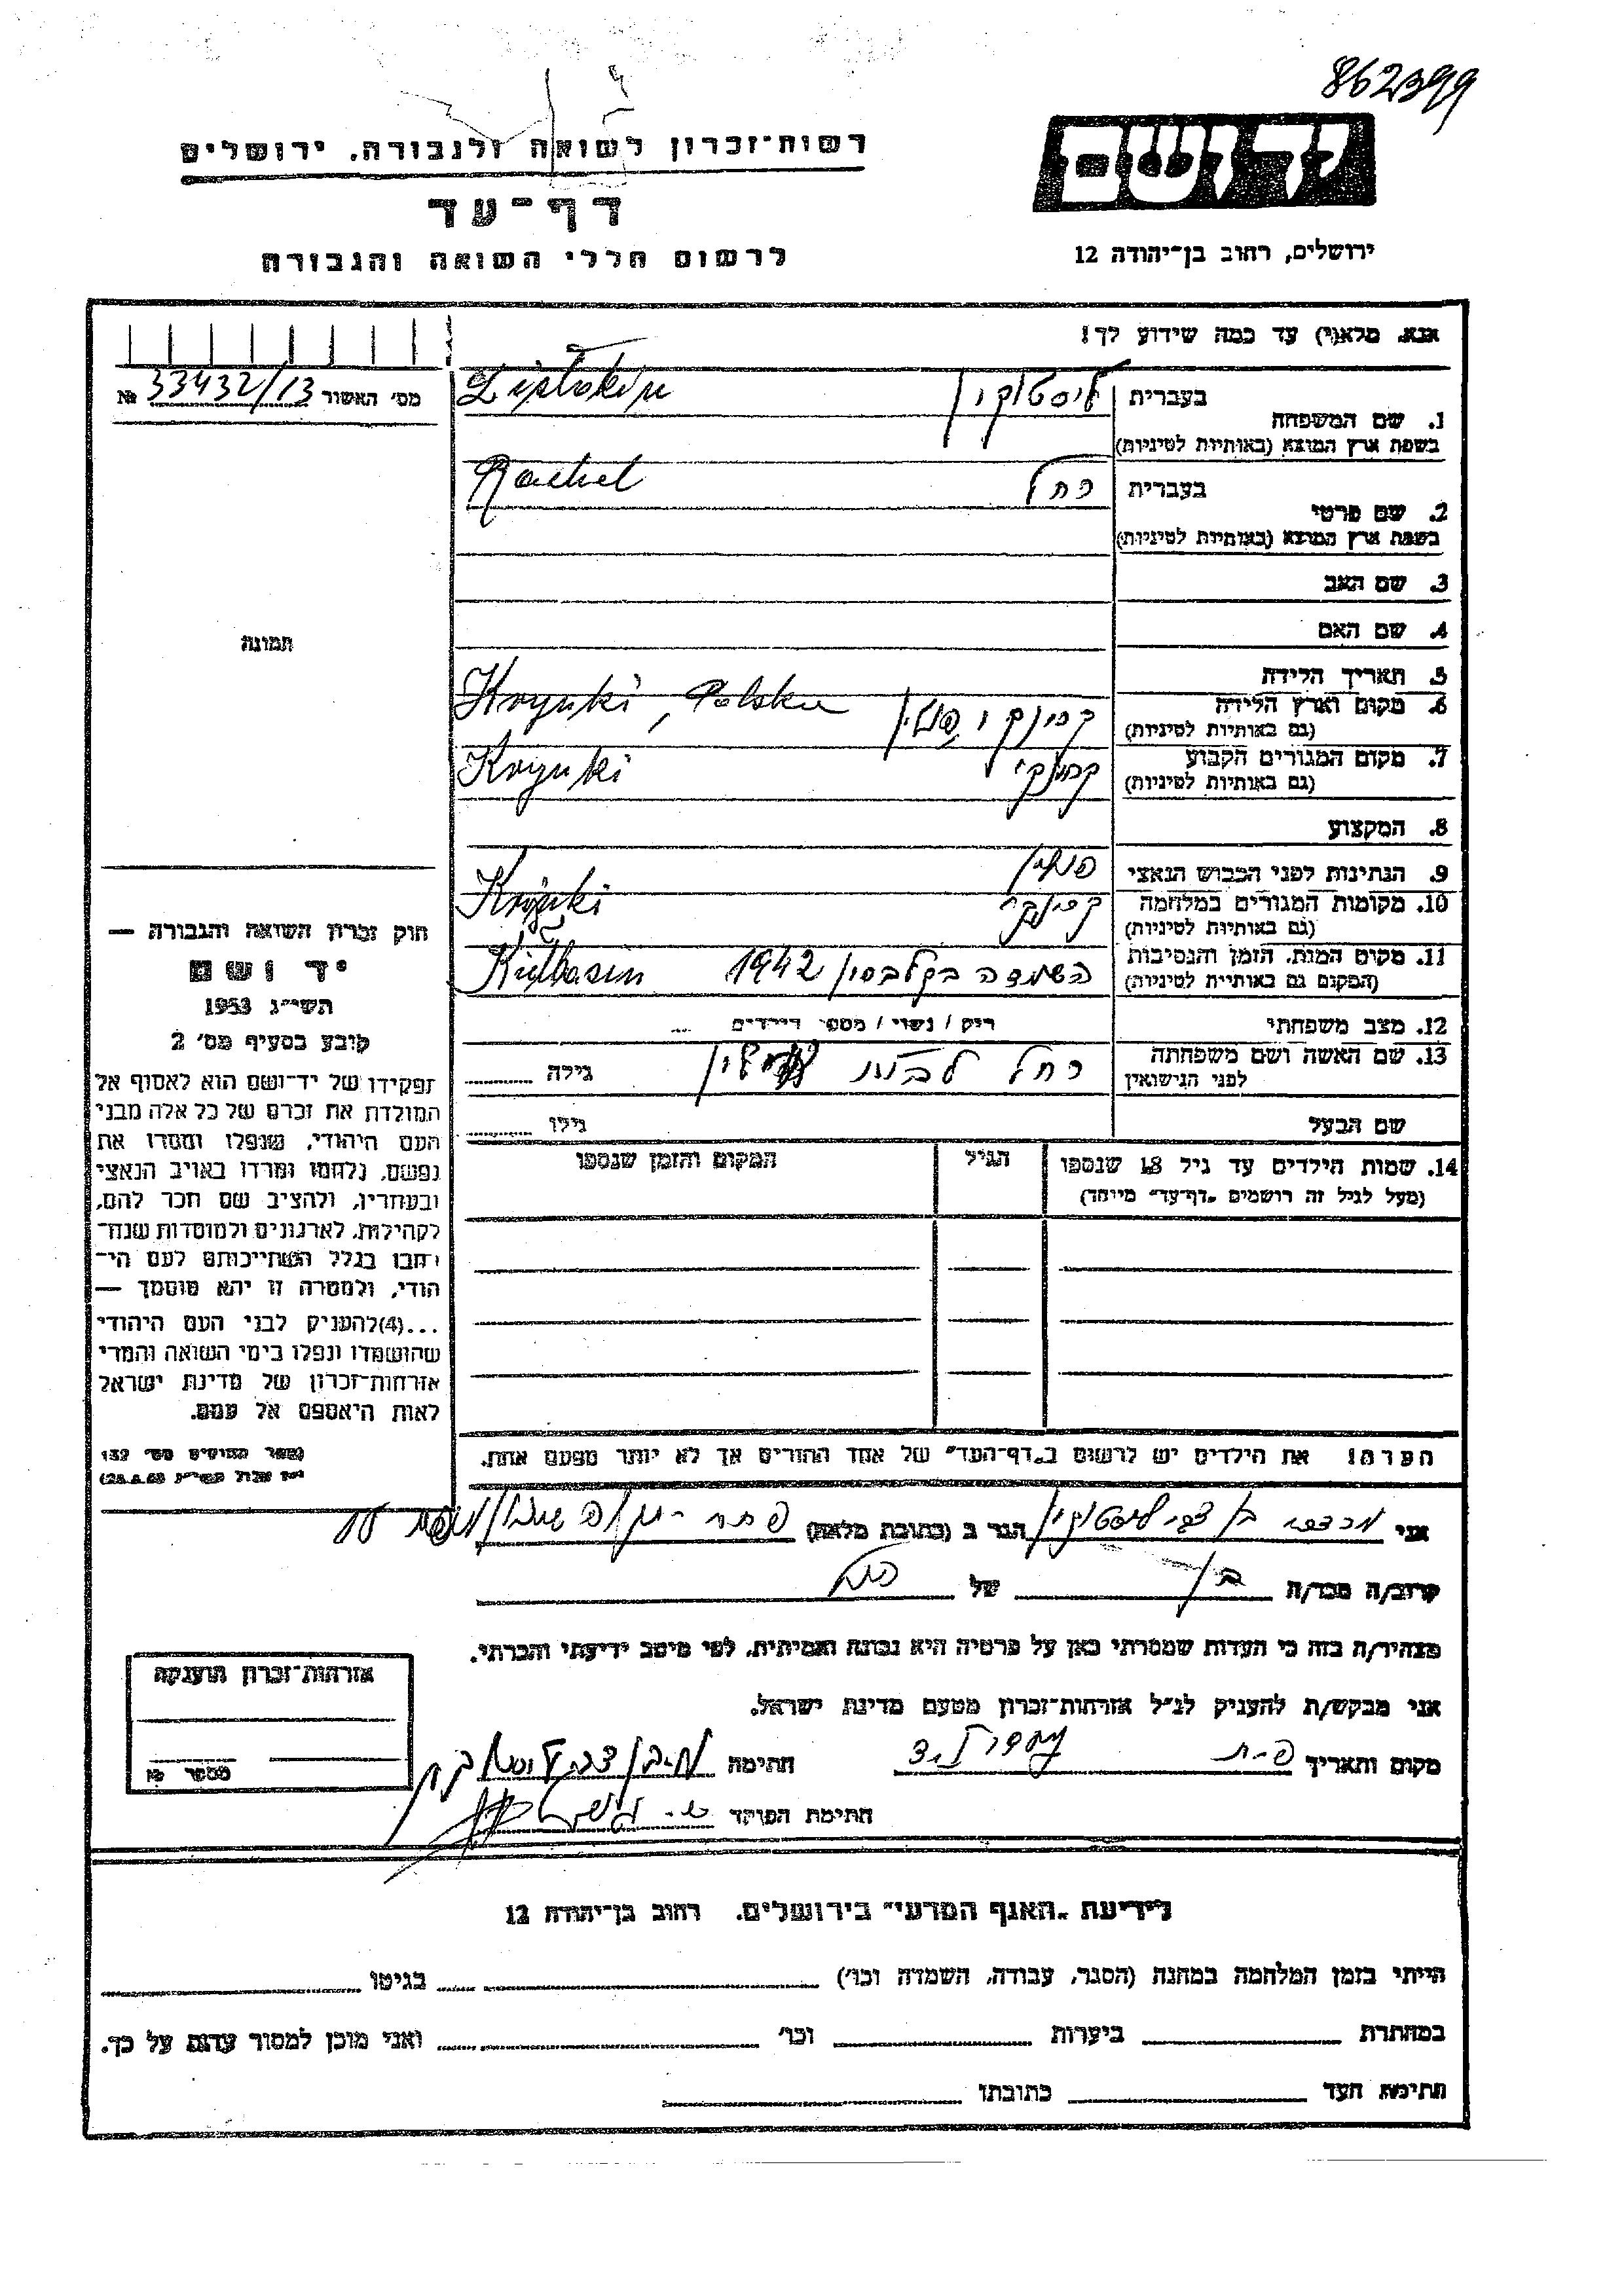 862399
ידושם
רשות־זכרון לשואה ולגבורה, ירושלים
דף־עד
לרשום חללי השואה והגבורה
ירושלים, רחוב בן־יהודה 12
אנא, מלא(י) עד כמה שידוע לך!
מס' האשור 33432/13 №
1. שם המשפחה
בעברית ליסטוקין
בשפת ארץ המוצא (באותיות לטיניות) Listokin
2. שם פרטי
בעברית רחל
בשפת ארץ המוצא (באותיות לטיניות) Rachel
3. שם האב
4. שם האם
תמונה
5. תאריך הלידה
6. מקום וארץ הלידה
(גם באותיות לטיניות) קרינקי, פולין Krynki, Polska
7. מקום המגורים הקבוע
(גם באותיות לטיניות) קרינקי Krynki
8. המקצוע
9. הנתינות לפני הכבוש הנאצי פולין
10. מקומות המגורים במלחמה
(גם באותיות לטיניות) קרינקי Krynki
11. מקום המות, הזמן והנסיבות
(המקום גם באותיות לטיניות) השמדה בקלבסין 1942 Kiełbasin
12. מצב משפחתי רוק / נשוי / מספר הילדים
13. שם האשה ושם משפחתה
לפני הנישואין רחל לבית גילה
שם הבעל גילו
14. שמות הילדים עד גיל 18 שנספו
(מעל לגיל זה רושמים „דף־עד" מיוחד)
הגיל
המקום והזמן שנספו
חוק זכרון השואה והגבורה —
יד ושם
תשי"ג 1953
קובע בסעיף מס' 2
תפקידו של יד־ושם הוא לאסוף אל
המולדת את זכרם של כל אלה מבני
העם היהודי, שנפלו ומסרו את
נפשם, נלחמו ומרדו באויב הנאצי
ובעוזריו, ולהציב שם וזכר להם,
לקהילות, לארגונים ולמוסדות שנח־
רבו בגלל השתייכותם לעם הי־
הודי, ולמטרה זו יהא מוסמך —
...(4)להעניק לבני העם היהודי
שהושמדו ונפלו בימי השואה והמרי
אזרחות־זכרון של מדינת ישראל
לאות היאספם אל עמם.
(ספר החוקים מס' 132
הערה! את הילדים יש לרשום ב„דף־העד" של אחד ההורים אך לא יותר מפעם אחת.
אני מרדכי בן צבי ליסטוקין הגר ב (כתובת מלאה) פתח־תקוה
קרוב/ה מכר/ה בן של רחל
מצהיר/ה בזה כי העדות שמסרתי כאן על פרטיה היא נכונה ואמיתית, לפי מיטב ידיעתי והכרתי.
אני מבקש/ת להעניק לנ"ל אזרחות־זכרון מטעם מדינת ישראל.
מקום ותאריך פ־ת חתימה
חתימת הפוקד
אזרחות־זכרון הוענקה
מספר
לידיעת „האגף המדעי" בירושלים. רחוב בן־יהודה 12
הייתי בזמן המלחמה במחנה (הסגר, עבודה, השמדה וכו') בגיטו
במחתרת ביערות וכו' ואני מוכן למסור עדות על כך.
חתימת העד כתובתו